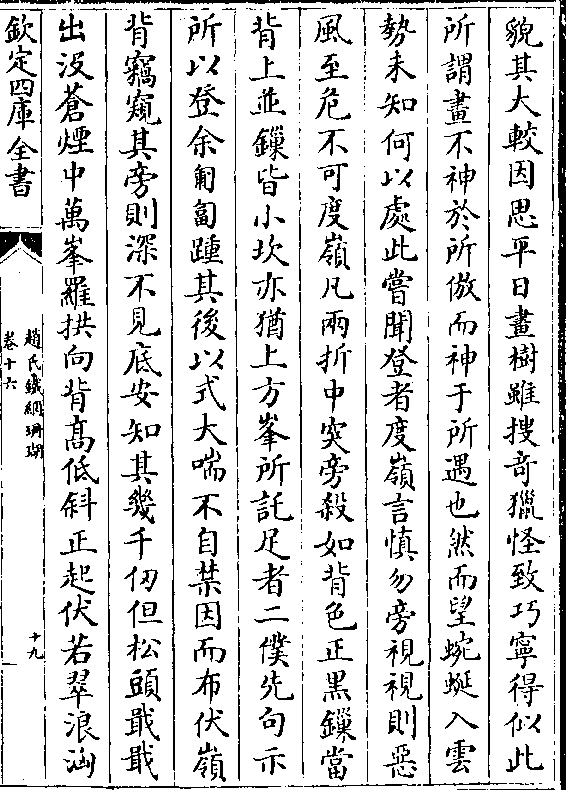 貌其大較因思平日畫樹雖搜竒獵怪致巧寧得似此
所謂畫不神於所倣而神于所遇也然而望蜿蜒入雲
勢未知何以處此嘗聞登者度嶺言慎勿旁視視則惡
風至危不可度嶺凡兩折中突旁殺如背色正黒鏁當
背上並鏁皆小坎亦猶上方峯所託足者二僕先句示
所以登余匍匐踵其後以式大喘不自禁因而布伏嶺
背竊窺其旁則深不見底安知其幾千仞但松頭戢戢
出没蒼煙中萬峯羅拱向背髙低斜正起伏若翠浪洶
欽定四庫全書
趙氏鐵網珊瑚
卷十六
十九